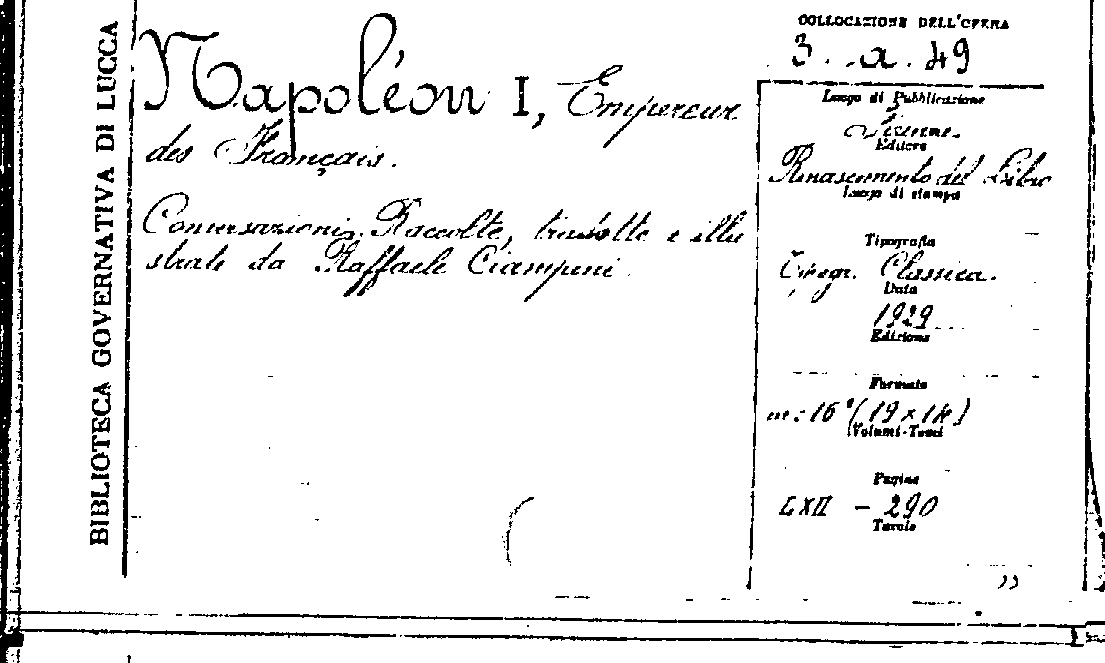 BIBLIOTECA GOVERNATIVA DI LUCCA
Napoléon I, Empereur
des Français.
Conversazioni. Raccolte, tradotte e illu
strate da Raffaele Ciampini
COLLOCAZIONE DELL'OPERA
3. a. 49
Luogo di Pubblicazione
Firenze.
Editore
Rinascimento del Libro
Luogo di stampa
Tipografia
Tipogr. Classica.
Data
1929
Edizione
Formato
in: 16° (19 x 14)
Volumi-Tomi
Pagine
LXII - 290
Tavole